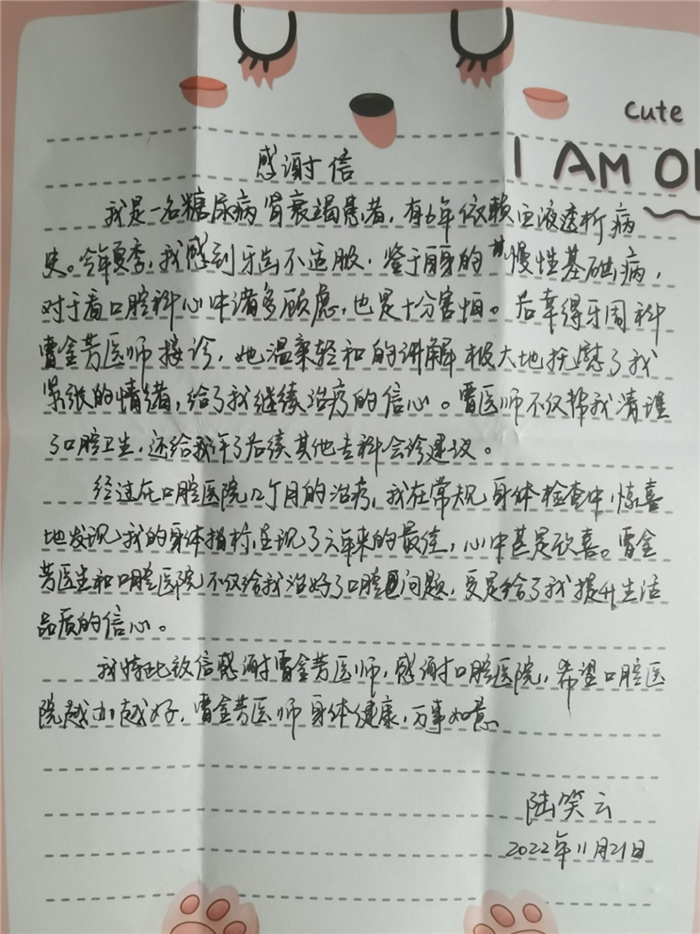 cute
I AM O
感谢信
我是一名糖尿病肾衰竭患者，有6年依赖血液透析病
史。今年夏季，我感到牙齿不适服，鉴于自身的慢性基础病，
对于看口腔科心中诸多顾虑，也是十分害怕。后幸得牙周科
曹金芳医师接诊，她温柔轻和的讲解极大地抚慰了我
紧张的情绪，给了我继续治疗的信心。曹医师不仅帮我清理
了口腔卫生，还给我许了后续其他专科会诊建议。
经过在口腔医院12个月的治疗，我在常规身体检查中，惊喜
地发现我的身体指标呈现了六年来的最佳，心中甚是欣喜。曹金
芳医生和口腔医院不仅给我治好了口腔问题，更是给了我提升生活
品质的信心。
我特此致信感谢曹金芳医师，感谢口腔医院，希望口腔医
院越办越好，曹金芳医师身体健康，万事如意
陆笑云
2022年11月21日